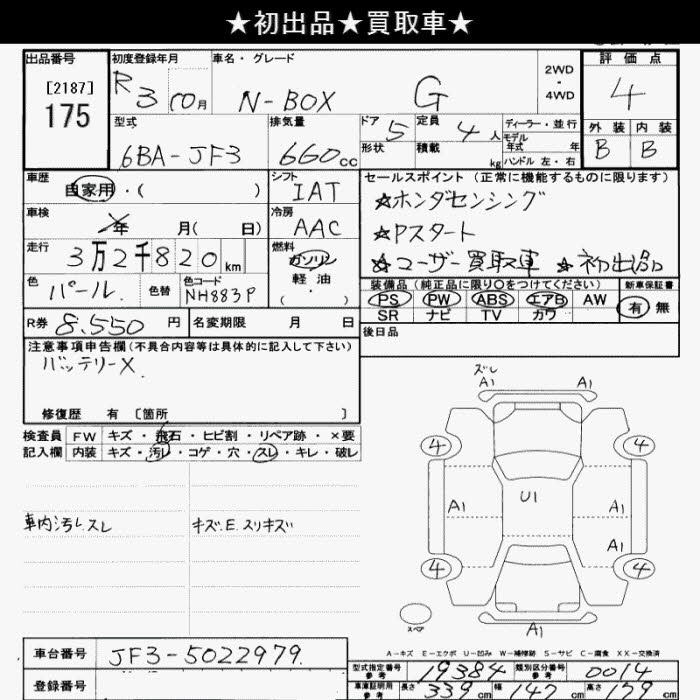 ★初出品★買取車★
出品番号 [2187] 175
初度登録年月 R3 10月
車名・グレード N-BOX G
2WD・4WD
評価点 4
外装 B 内装 B
型式 6BA-JF3
排気量 660cc
ドア 5 形状
定員 4人 積載 kg
ディーラー・並行
モデル年式 年
ハンドル 左・右
車歴 自家用・( )
シフト IAT
車検 年 月( 日)
冷房 AAC
走行 3万2千820km
燃料 ガソリン・軽油・( )
色 パール 色替
色コード NH883P
R券 8,550円
名変期限 月 日
セールスポイント(正常に機能するものに限ります)
☆ホンダセンシング
☆Pスタート
☆ユーザー買取車 ☆初出品
装備品(純正品に限り○をつけてください)
PS PW ABS エアB AW
SR ナビ TV カワ
新車保証書 有 無
後日品
注意事項申告欄(不具合内容等は具体的に記入して下さい)
バッテリーX.
修復歴 有 [箇所 ]
検査員記入欄
FW キズ・飛石・ヒビ割・リペア跡・×要
内装 キズ・汚レ・コゲ・穴・スレ・キレ・破レ
車内汚レスレ
キズ.E.スリキズ
ズレ
A1 A1
④ ④
U1
A1 A1
A1
④ ④
A1
スペア
A-キズ E-エクボ U-凹み W-補修跡 S-サビ C-腐食 XX-交換済
車台番号 JF3-5022979.
登録番号
型式指定番号参考 19384
類別区分番号参考 0014
車庫証明用参考 長さ 339cm 幅 147cm 高さ 179cm